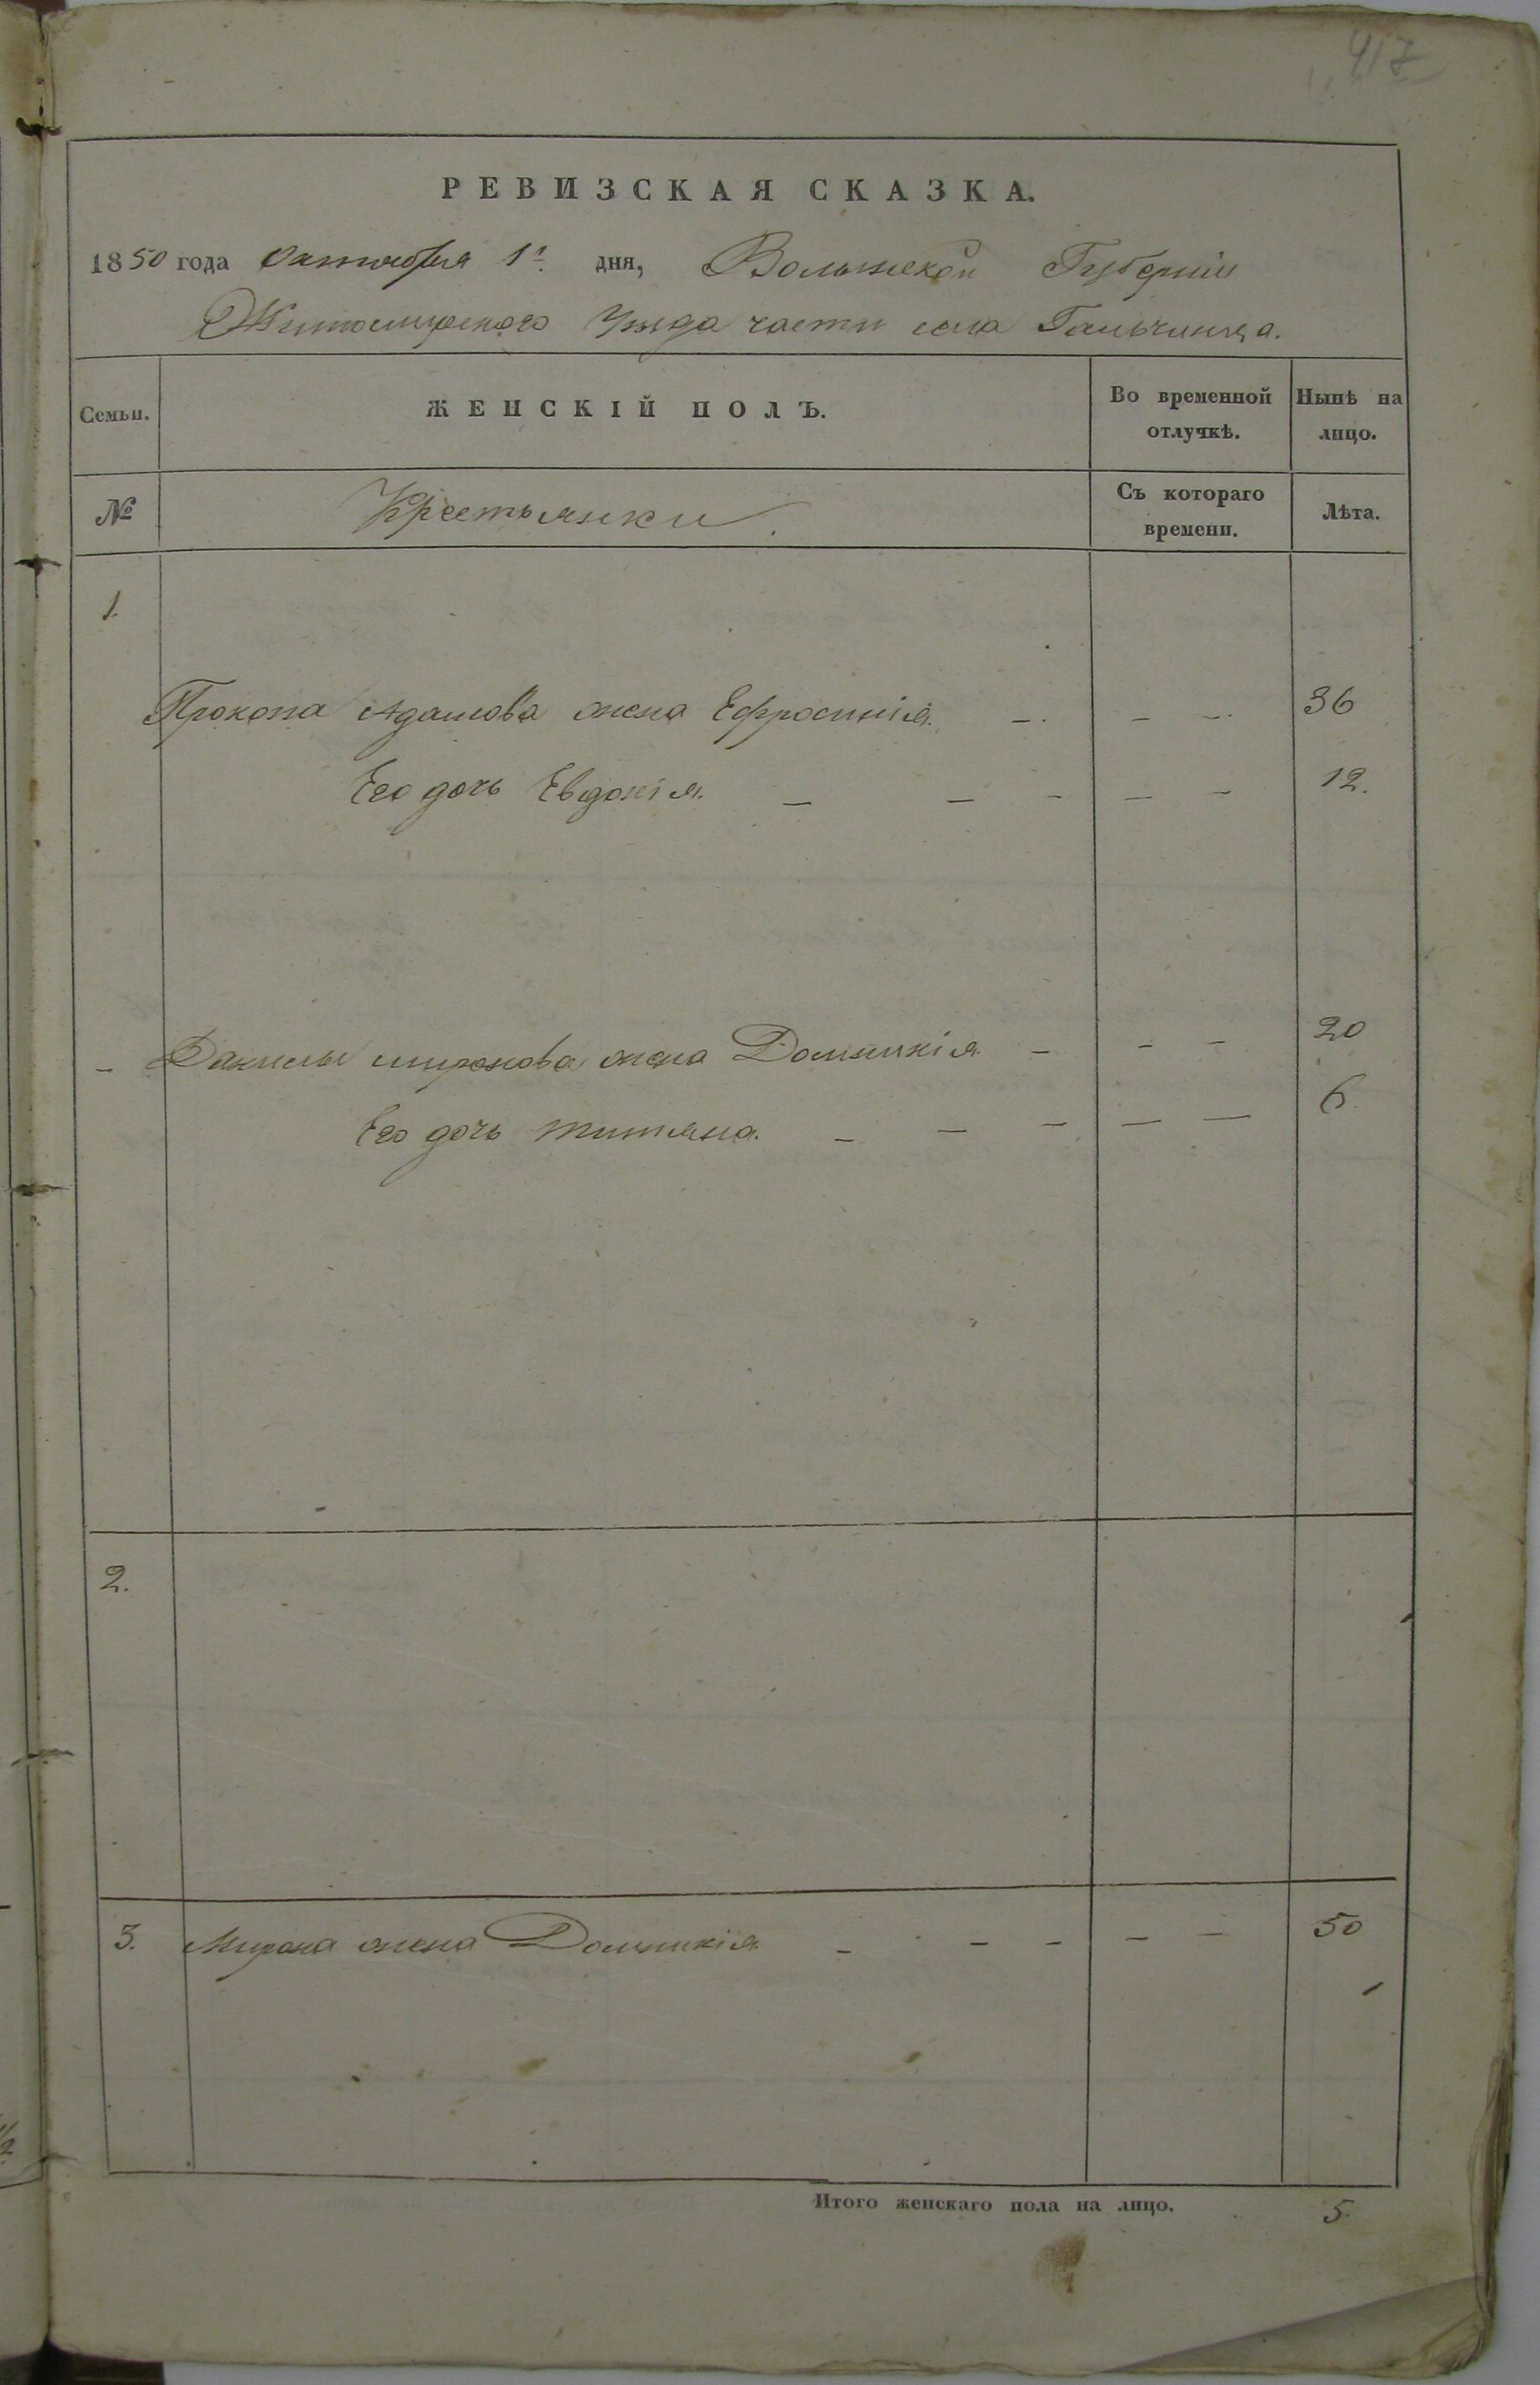 417
РЕВИЗСКАЯ СКАЗКА.
1850 года Октября 1го дня, Волынской Губерніи
Житомирского Уезда части села Гальчинца.
Семьи. ЖЕНСКІЙ ПОЛЪ. Во временной отлучкѣ. Нынѣ на лицо.
№ Крестьянки. Съ котораго времени. Лѣта.
1.
Прокопа Адамова жена Ефросинія. - - - 36
Его дочь Евдокія. - - - - - 12.
- Данилы миронова жена Домникія - - - 20
Его дочь Титяна. - - - - - 6
2.
3. Мирона жена Домникія - - - - - 50
Итого женскаго пола на лицо. 5.